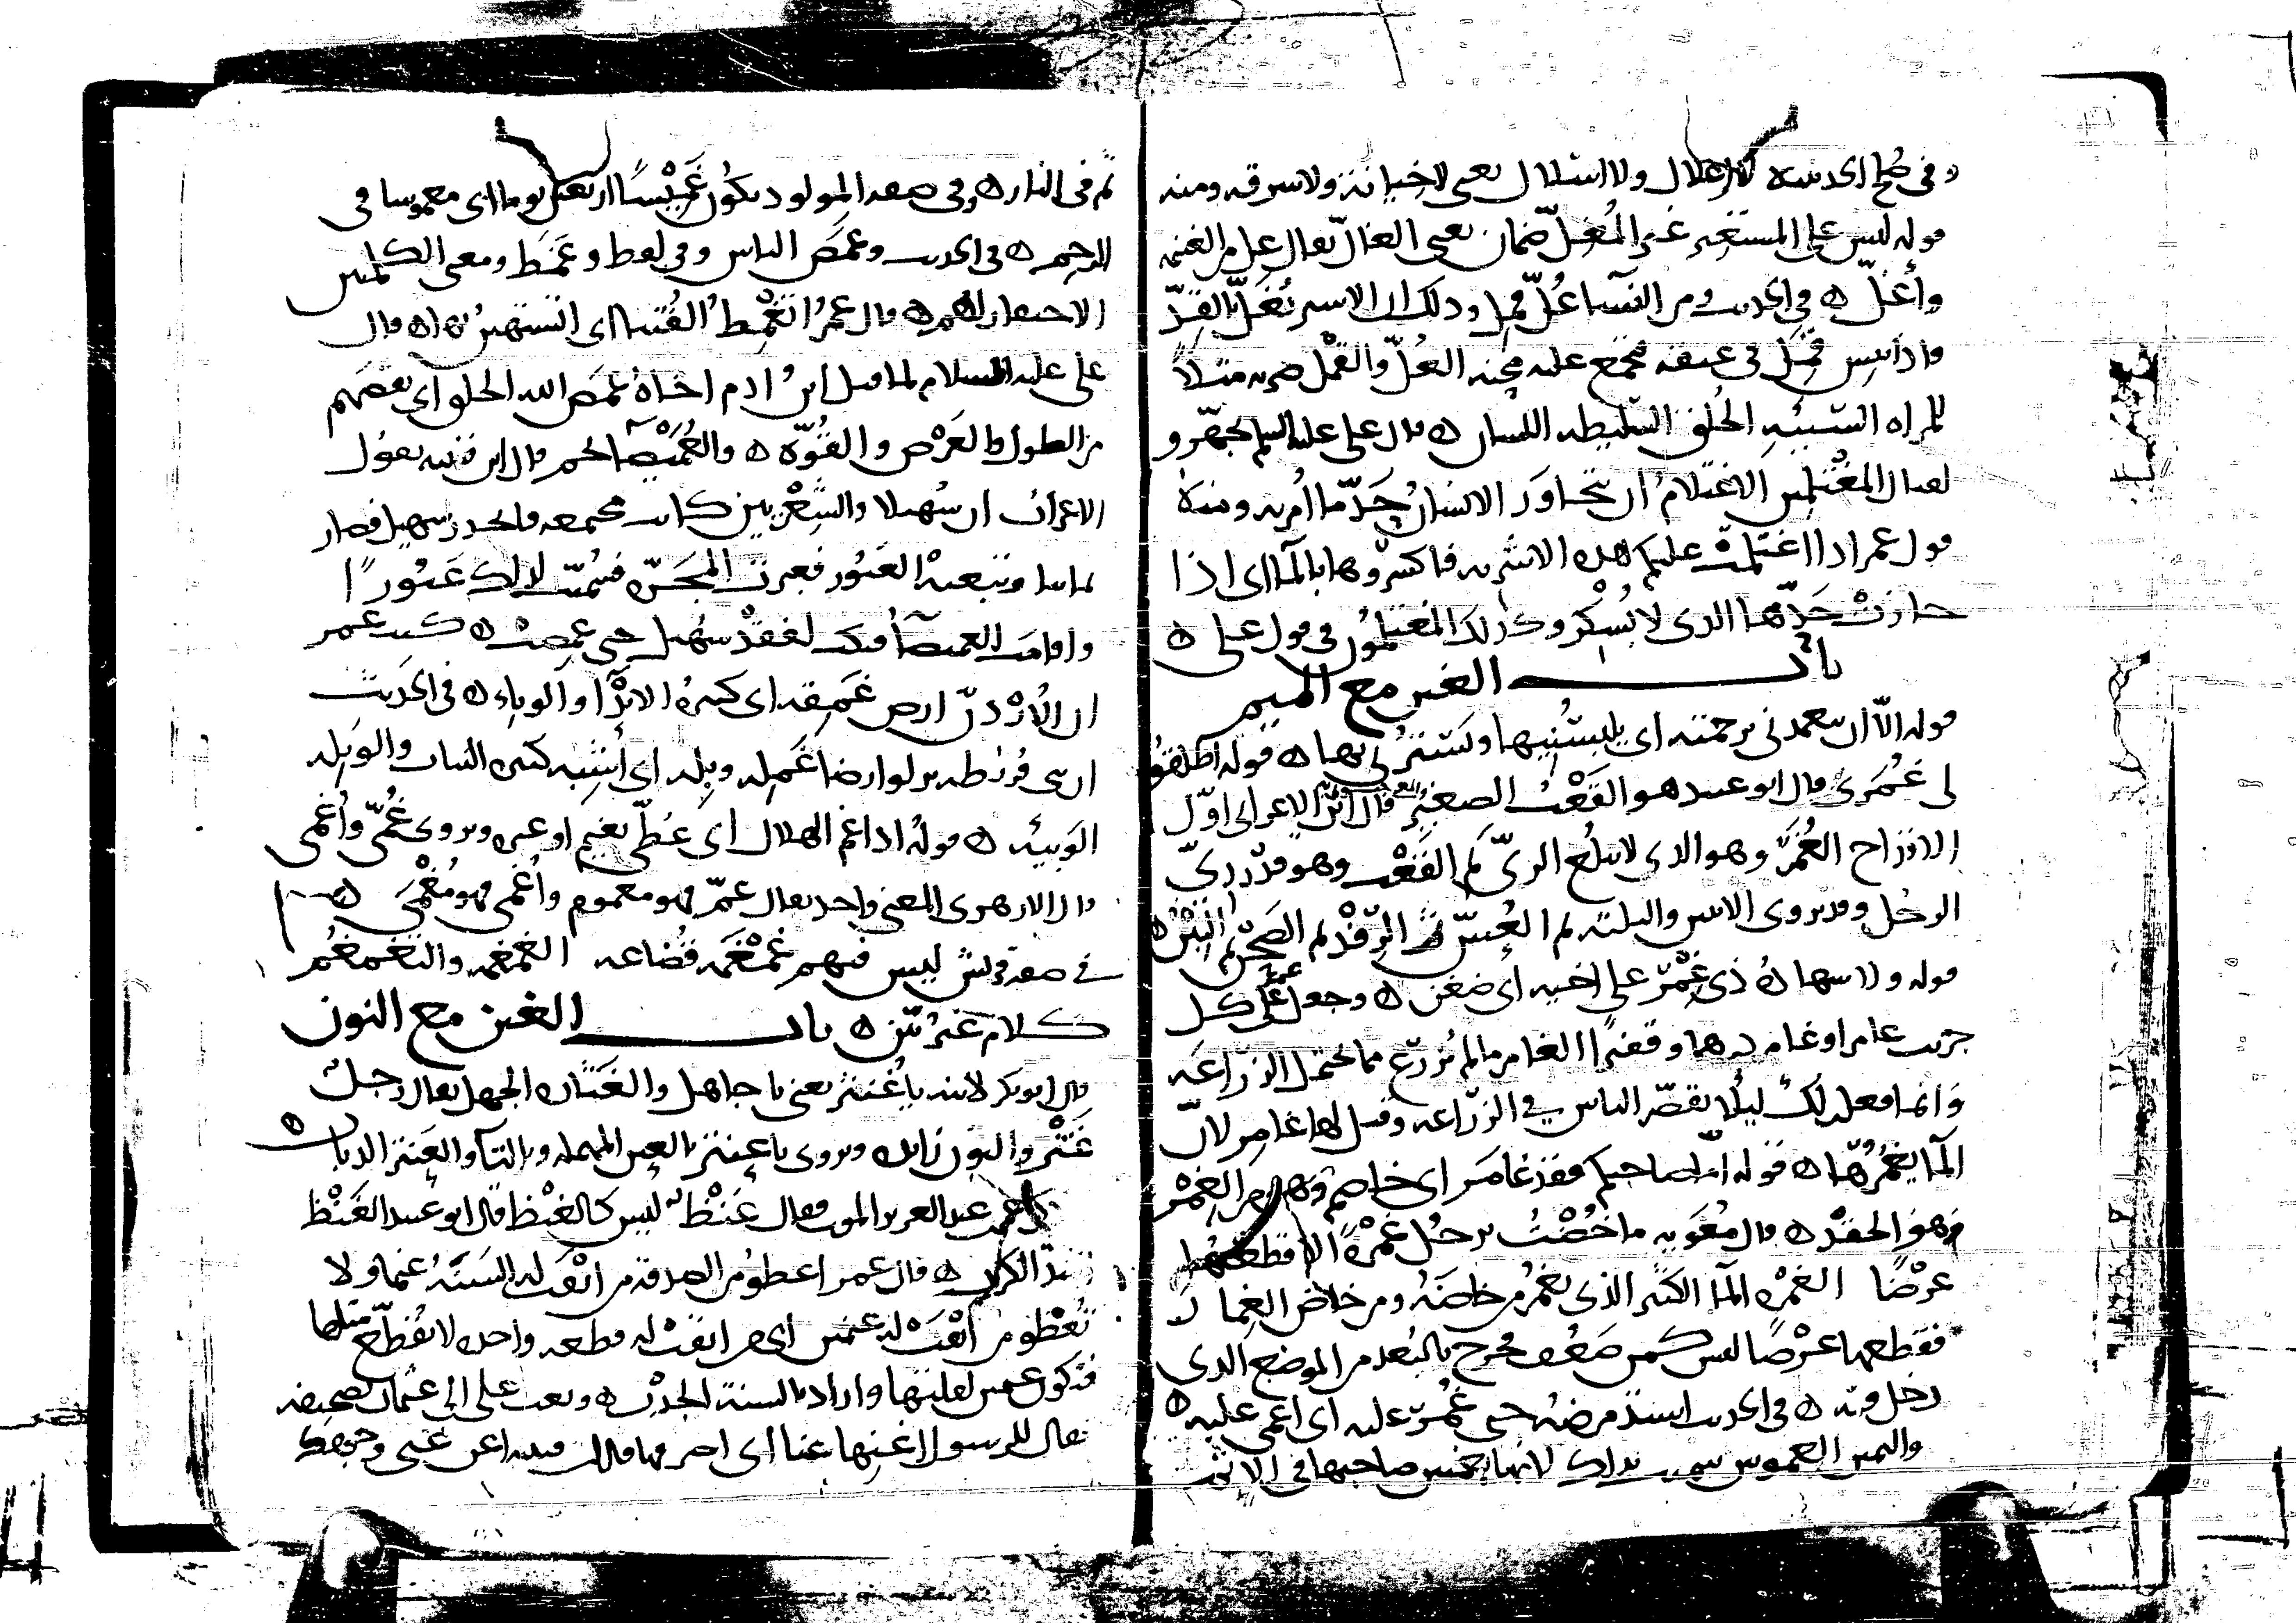 وفي صلح الحديبية لا إغلال ولا اسلال يعني لا خيانة ولا سرقة ومنه
قوله ليس على المستعير غير المُغلّ ضمان يعني الغال يقال غل من الغنيمة
وأغلّ ه في الحديث ومن النساء غُلّ قمل وذلك ان الاسير يُغَلّ بالقِدّ
واذا يبس قَمِل في عنقه فيجتمع عليه محنه الغُلّ والقَمْل ضربه مثلاً
للمراه السيئه الخُلق السليطه اللسان ه قال علي عليه السلم تجهّزو
لقتال المغتلمين الاغتلامُ ان يتجاوز الانسانُ حَدّ ما أُمر به ومنه
قول عمر اذا اغتلمت عليكم هذه الاشربه فاكسروها بالماء اي اذا
جازت حَدَّها الذي لا يُسْكر وكذلك المغتلمون في قول علي ه
باب الغين مع الميم
قوله الاّ ان يتغمدني برحمته اي يلبسُنيها ويسترُني بها ه قوله اطلقوا
لي غُمَري قال ابو عبيد هو القَعْب الصغير قال ابن الاعرابي اوّل
الاقداح الغُمَر وهو الذي لا يبلغ الريّ ثم القَعْب وهو قدر ريّ
الرجُل وقد يروي الاثنين والثلثه ثم العُسّ ثم الرّفْد ثم الصَحْن ثم التبْن ه
قوله ولا شهادةُ ذي غِمْر على اخيه اي ضغن ه وجعل عمر على كل
جريب عامر او غامر درهما وقفيزًا الغامر ما لم يُزرَع مما يحتمل الزراعه
وانما فعل ذلك ليلا يقصّر الناس في الزراعه وقيل لها غامر لانّ
الماء يغمُرُها ه قوله امّا صاحبكم فقد غامَر اي خاصم وهو من الغِمْر
وهو الحقْد ه قال مُعوية ما خُضْتُ برجُل غَمْرةً الا قطعتُها
عرْضًا الغَمْره الماء الكثير الذي يغمُر من خاضَهُ ومن خاض الغِمار
فقطعها عرْضًا ليس كمن ضعُف فخرج بالبُعد من الموضع الذي
دخل فيه ه في الحديث اشتدّ مرضهُ حتى غُمِرَ عليه اي اغمي عليه ه
واليمين الغموس سميت بذلك لانها تغمس صاحبها في الاثم
ثم في النار ه وفي صفه المولود يكُون غَمِيْسًا اربعين يوما اي مغموسا في
الرحم ه في الحديث وغمَصَ الناس وفي لفظ وغَمَط ومعنى الكلمتين
الاحتقار لهم ه وقال عمرُ اتغْمِطُ الفُتيا اي اتستهينُ بها ه وقال
علي عليه السلام لما قتل ابنُ ادم اخاهُ غمَصَ الله الخلق اي نقصَهم
من الطول والعَرْض والقُوّه ه والغُمَيْصاء نجم قال ابن قتيبه يقول
الاعراب ان سُهيلا والشِعْريين كانت مجتمعه فانحدر سهيل فصار
يمانيا وتبعته العَبُور فعبرت المجَرّه فسُمّيت لذلك عَبُورًا
واقامت الغميصاء فبكت لفقْد سُهيل حتى غمِصت ه كتب عمر
ان الاُرْدُنّ ارض غَمِقه اي كثيرةُ الانداء والوباء ه في الحديث
ان بني قُريظه نزلوا ارضا غَمِله وبِله اي أَشِبه كثيره النبات والوَبِله
الوَبيئه ه قولهُ اذا غم الهلال اي غُطّي بغيم او غيره ويروى غُمّيَ وأُغْمي
قال الازهري المعنى واحد يقال غمّ فهو مغموم وأُغمي فهو مُغْمًى ه
في صفة قريش ليس فيهم غَمْغَمَة قُضاعه الغمغمه والتغمغُم
كلام غيرُ بيّن ه باب الغين مع النون
قال ابو بكر لابنه يا غُنثر يعني يا جاهل والغَثَاره الجهل يقال رجل
غَثَر والنون زايده ويروى يا عنتر بالعين المهمله وبالتاء والعَنتر الذباب ه
ذكر عمر بن عبد العزيز الموت فقال غَنْظ ليس كالغَنْظ قال ابو عبيد الغَنْظ
اشدّ الكرب ه قال عمر اعطوا من الصدقة من ابْقَت له السَنَةُ غنما ولا
تُعْطُو من ابْقَت له غنمين اي من ابقَتْ له قطعه واحده لا تُقطّع مثلها
فتكون غنمين لقلتها واراد بالسنة الجدْب ه وبعث علي الى عثمان بصحيفه
فقال للرسول اغنِها عنا اي اصرفها ومنه اغن عني وجهك